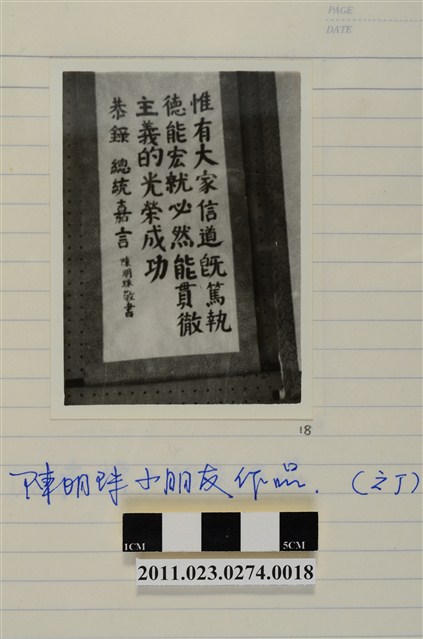 PAGE
DATE
惟有大家信道既篤執
德能宏就必然能貫徹
主義的光榮成功
恭錄 總統嘉言 陳明珠敬書
18
陳明珠小朋友作品. (之丁)
1CM 5CM
2011.023.0274.0018